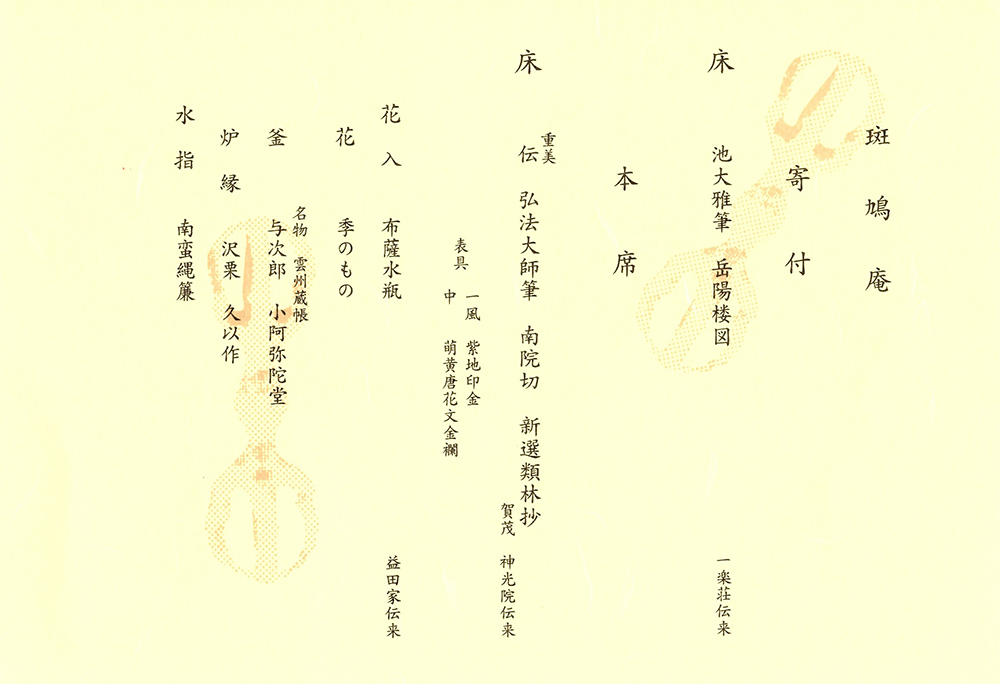 斑鳩庵
寄付
床 池大雅筆 岳陽楼図 一楽荘伝来
本席
重美
床 伝 弘法大師筆 南院切 新選類林抄
賀茂 神光院伝来
表具 一風 紫地印金
中 萌黄唐花文金襴
花入 布薩水瓶 益田家伝来
花 季のもの
名物 雲州蔵帳
釜 与次郎 小阿弥陀堂
炉縁 沢栗 久以作
水指 南蛮縄簾